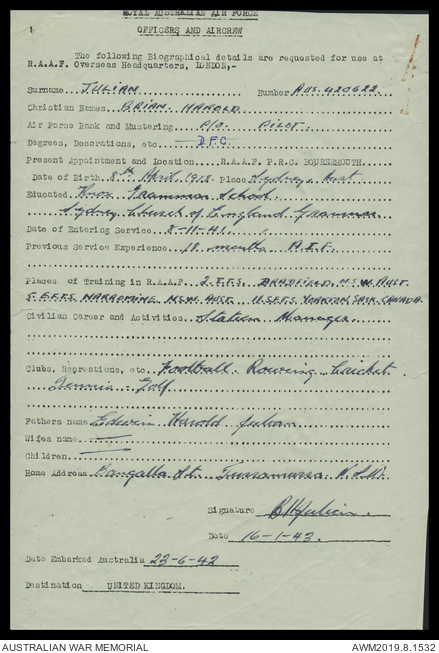 ROYAL AUSTRALIAN AIR FORCE
OFFICERS AND AIRCREW
The following Biographical details are requested for use at
R.A.A.F. Overseas Headquarters, LONDON,-
Surname JULIAN Number AUS. 420622.
Christian Names BRIAN HAROLD
Air Force Rank and Mustering P/O. PILOT.
Degrees, Decorations, etc D.F.C.
Present Appointment and Location R.A.A.F. P.R.C. BOURNEMOUTH.
Date of Birth 8th April 1918 Place Sydney, Aust
Educated Knox Grammar School.
Sydney Church of England Grammar
Date of Entering Service 8-11-41.
Previous Service Experience 18 months A.I.F.
Places of Training in R.A.A.F. 2.I.T.S. BRADFIELD N.S.W. AUST.
5 E.F.T.S NARROMINE N.S.W. AUST 11 S.F.T.S YORKTON, SASK. CANADA.
Civilian Career and Activities Station Manager.
Clubs, Recreations, etc Football. Rowing. Cricket
Tennis - Golf
Fathers name Edwin Harold Julian
Wifes name
Children
Home Address St. N.S.W.
Signature B H Julian.
Date 16-1-43.
Date Embarked Australia 23-6-42
Destination UNITED KINGDOM.
AUSTRALIAN WAR MEMORIAL AWM2019.8.1532